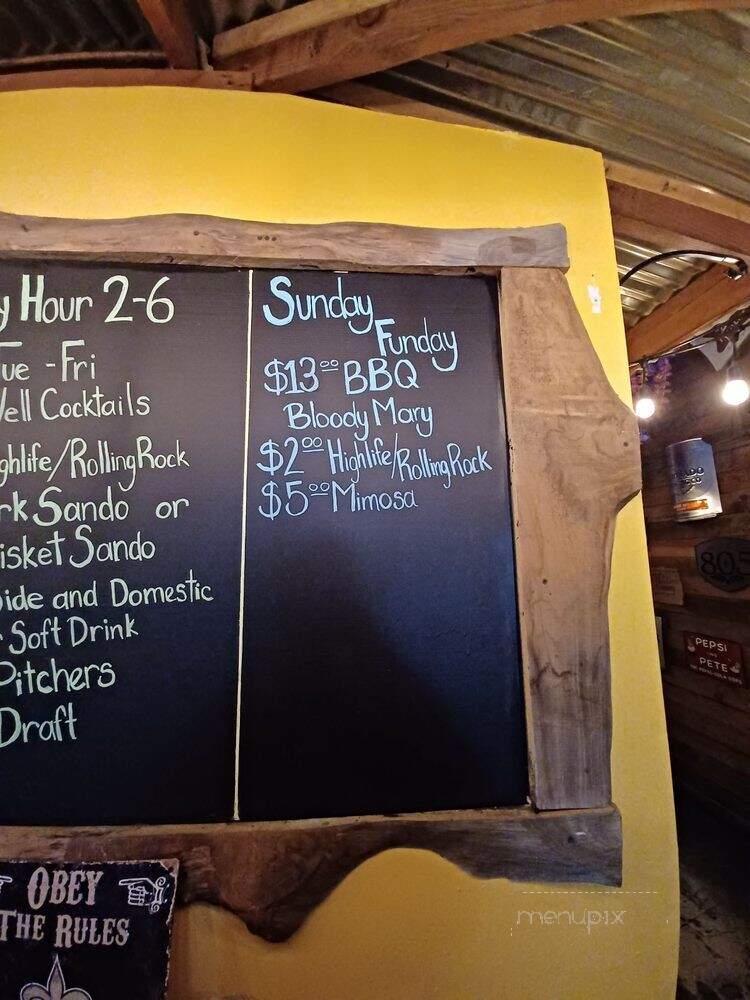 y Hour 2-6
Tue - Fri
Well Cocktails
ghlife/Rolling Rock
rk Sando or
isket Sando
ide and Domestic
r Soft Drink
Pitchers
Draft
Sunday
Funday
$13.00 BBQ
Bloody Mary
$2.00 Highlife/Rolling Rock
$5.00 Mimosa
OBEY
THE RULES
805
PEPSI
AND
PETE
menupix